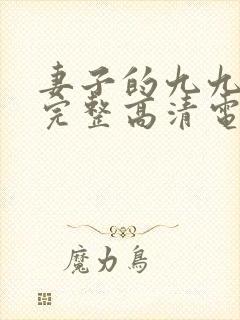 妻子的九九
完整高清電
魔力鳥